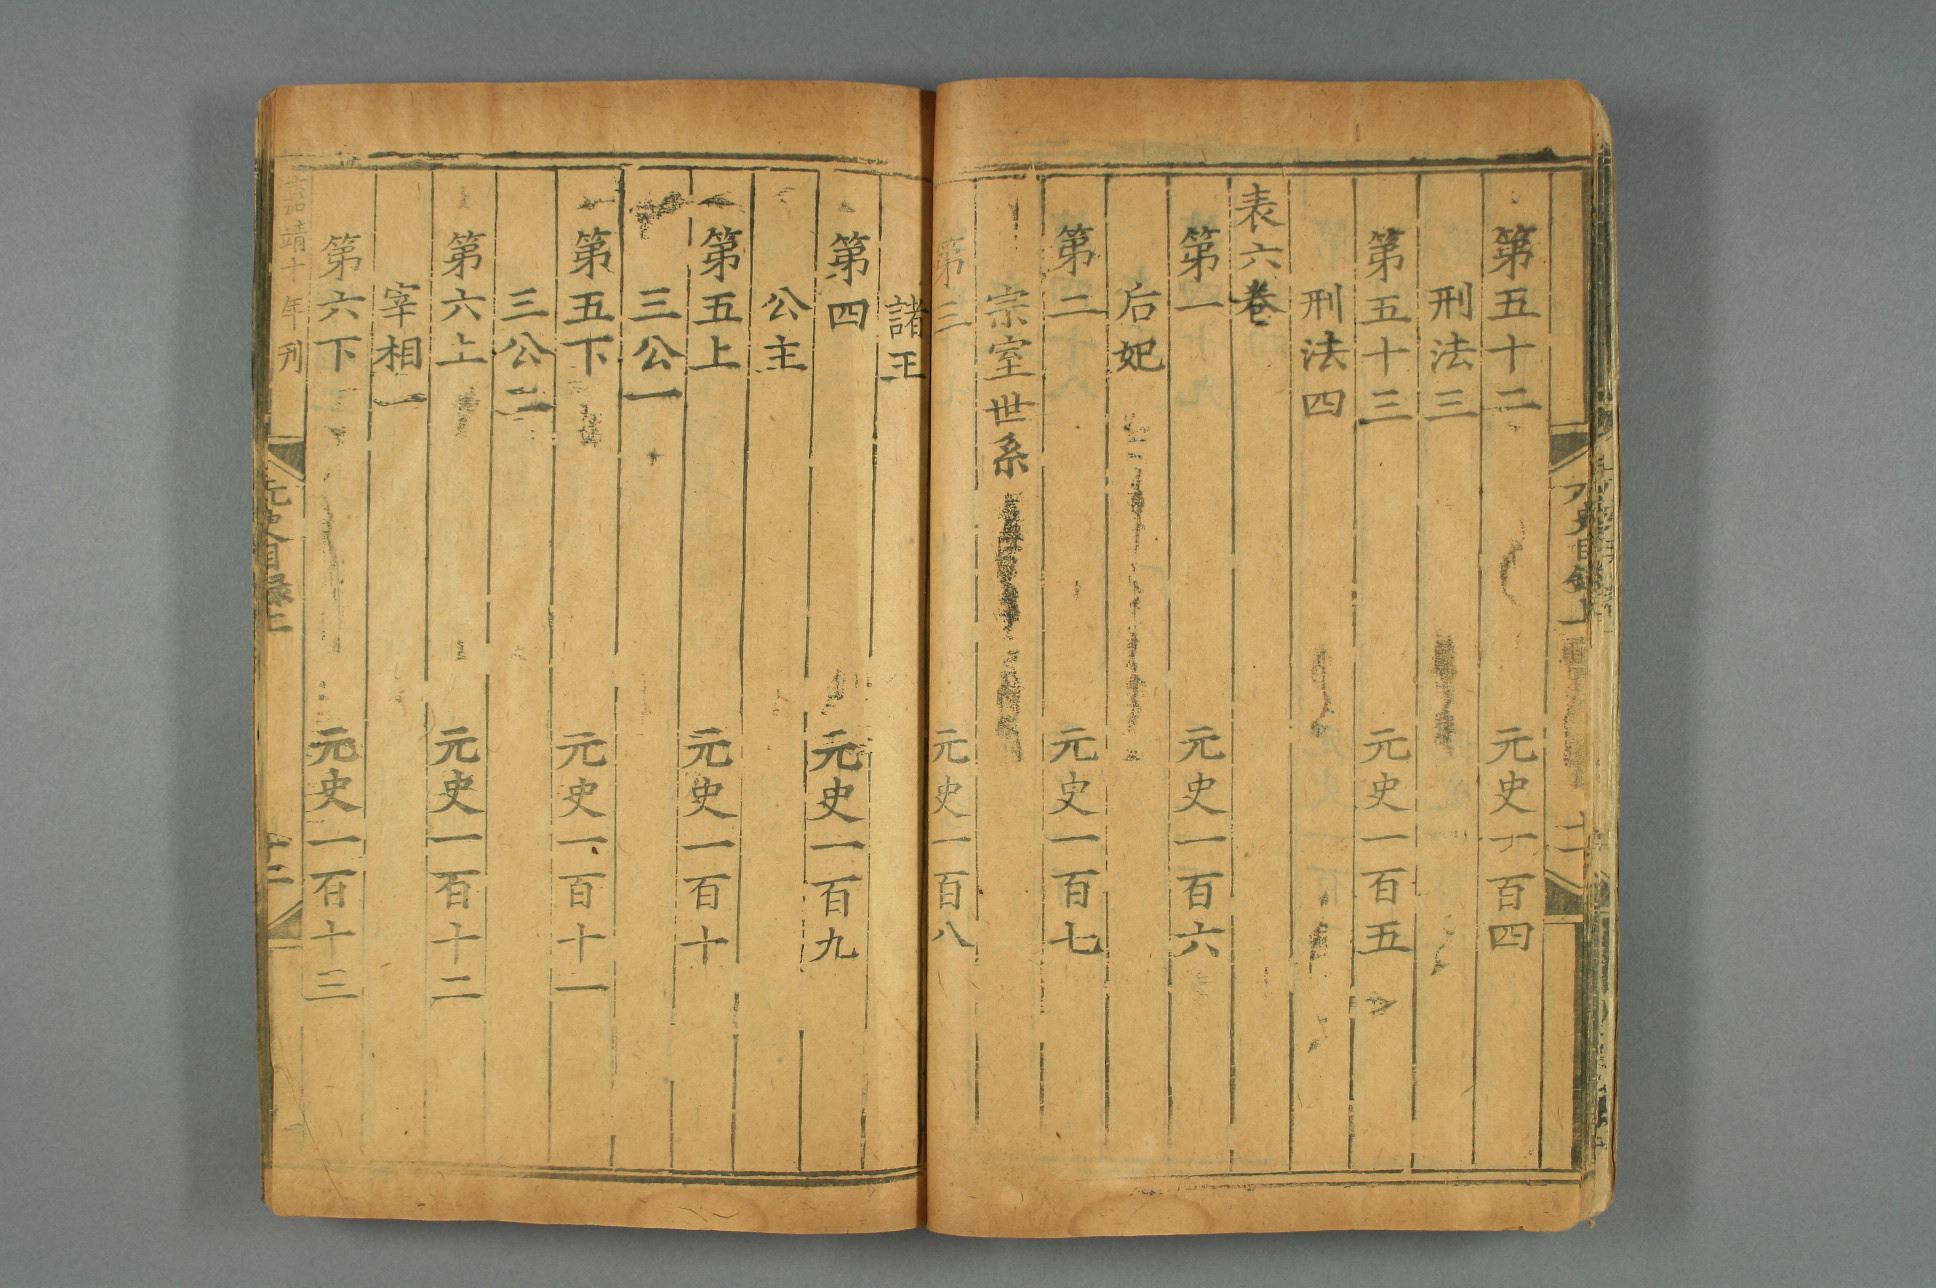 第五十二 元史一百四
刑法三
第五十三 元史一百五
刑法四
表六卷
第一 元史一百六
后妃
第二 元史一百七
宗室世系
第三 元史一百八
諸王
第四 元史一百九
公主
第五上 元史一百十
三公一
第五下 元史一百十一
三公二
第六上 元史一百十二
宰相一
第六下 元史一百十三
嘉靖十年刊
元史目録上 十二